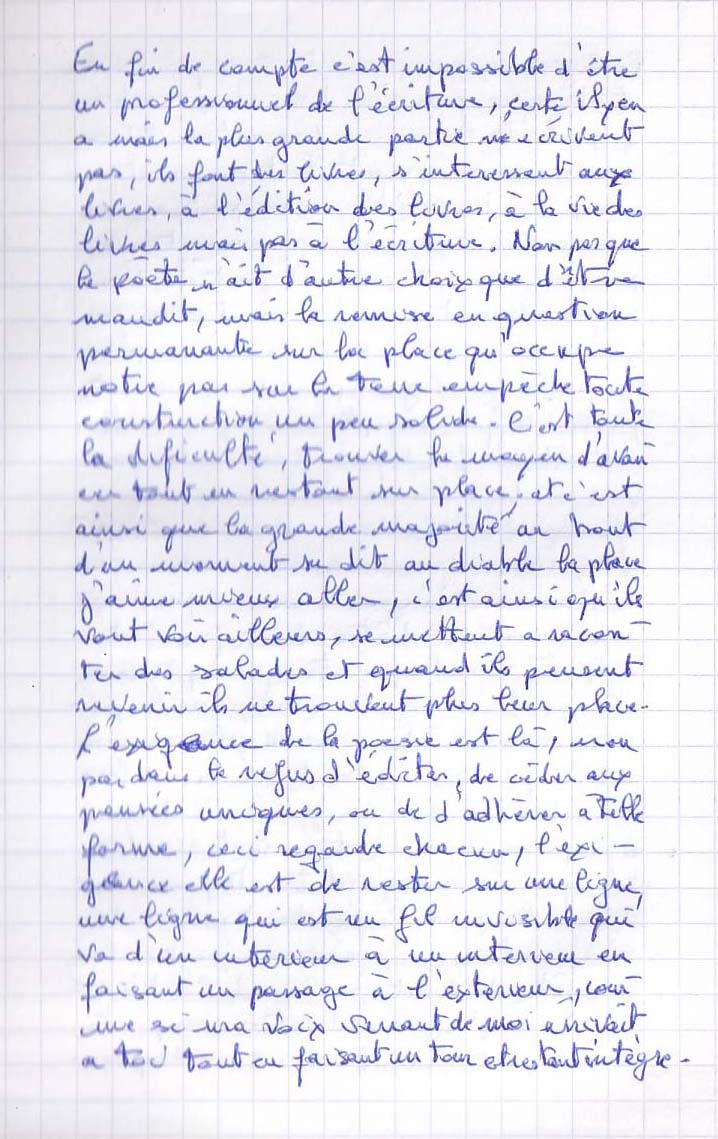 En fin de compte c'est impossible d'être
un professionnel de l'écriture, certe il y en
a mais la plus grande partie n'écrivent
pas, ils font des livres, s'interessent aux
livres, à l'édition des livres, à la vie des
livres mais pas à l'écriture. Non pas que
le poète n'ait d'autre choix que d'être
maudit, mais la remise en question
permanante sur la place qu'occupe
notre pas sur la terre empêche toute
construction un peu solide. C'est toute
la dificulté, trouver le moyen d'avan
cer tout en restant sur place, et c'est
ainsi que la grande majorité au bout
d'un moment se dit au diable la place
j'aime mieux aller, c'est ainsi qu'ils
vont voir ailleurs, se mettent a racon-
ter des salades et quand ils pensent
revenir ils ne trouvent plus leur place.
L'exigence de la poesie est là, non
pas dans le refus d'éditer, de céder aux
pensées uniques, ou de d'adhérer a telle
forme, ceci regarde chacun, l'exi-
gence elle est de rester sur une ligne,
une ligne qui est un fil invisible qui
va d'un interieur à un interieur en
faisant un passage à l'exterieur, com
me si ma voix venant de moi arrivait
a toi tout en faisant un tour et restant intègre.